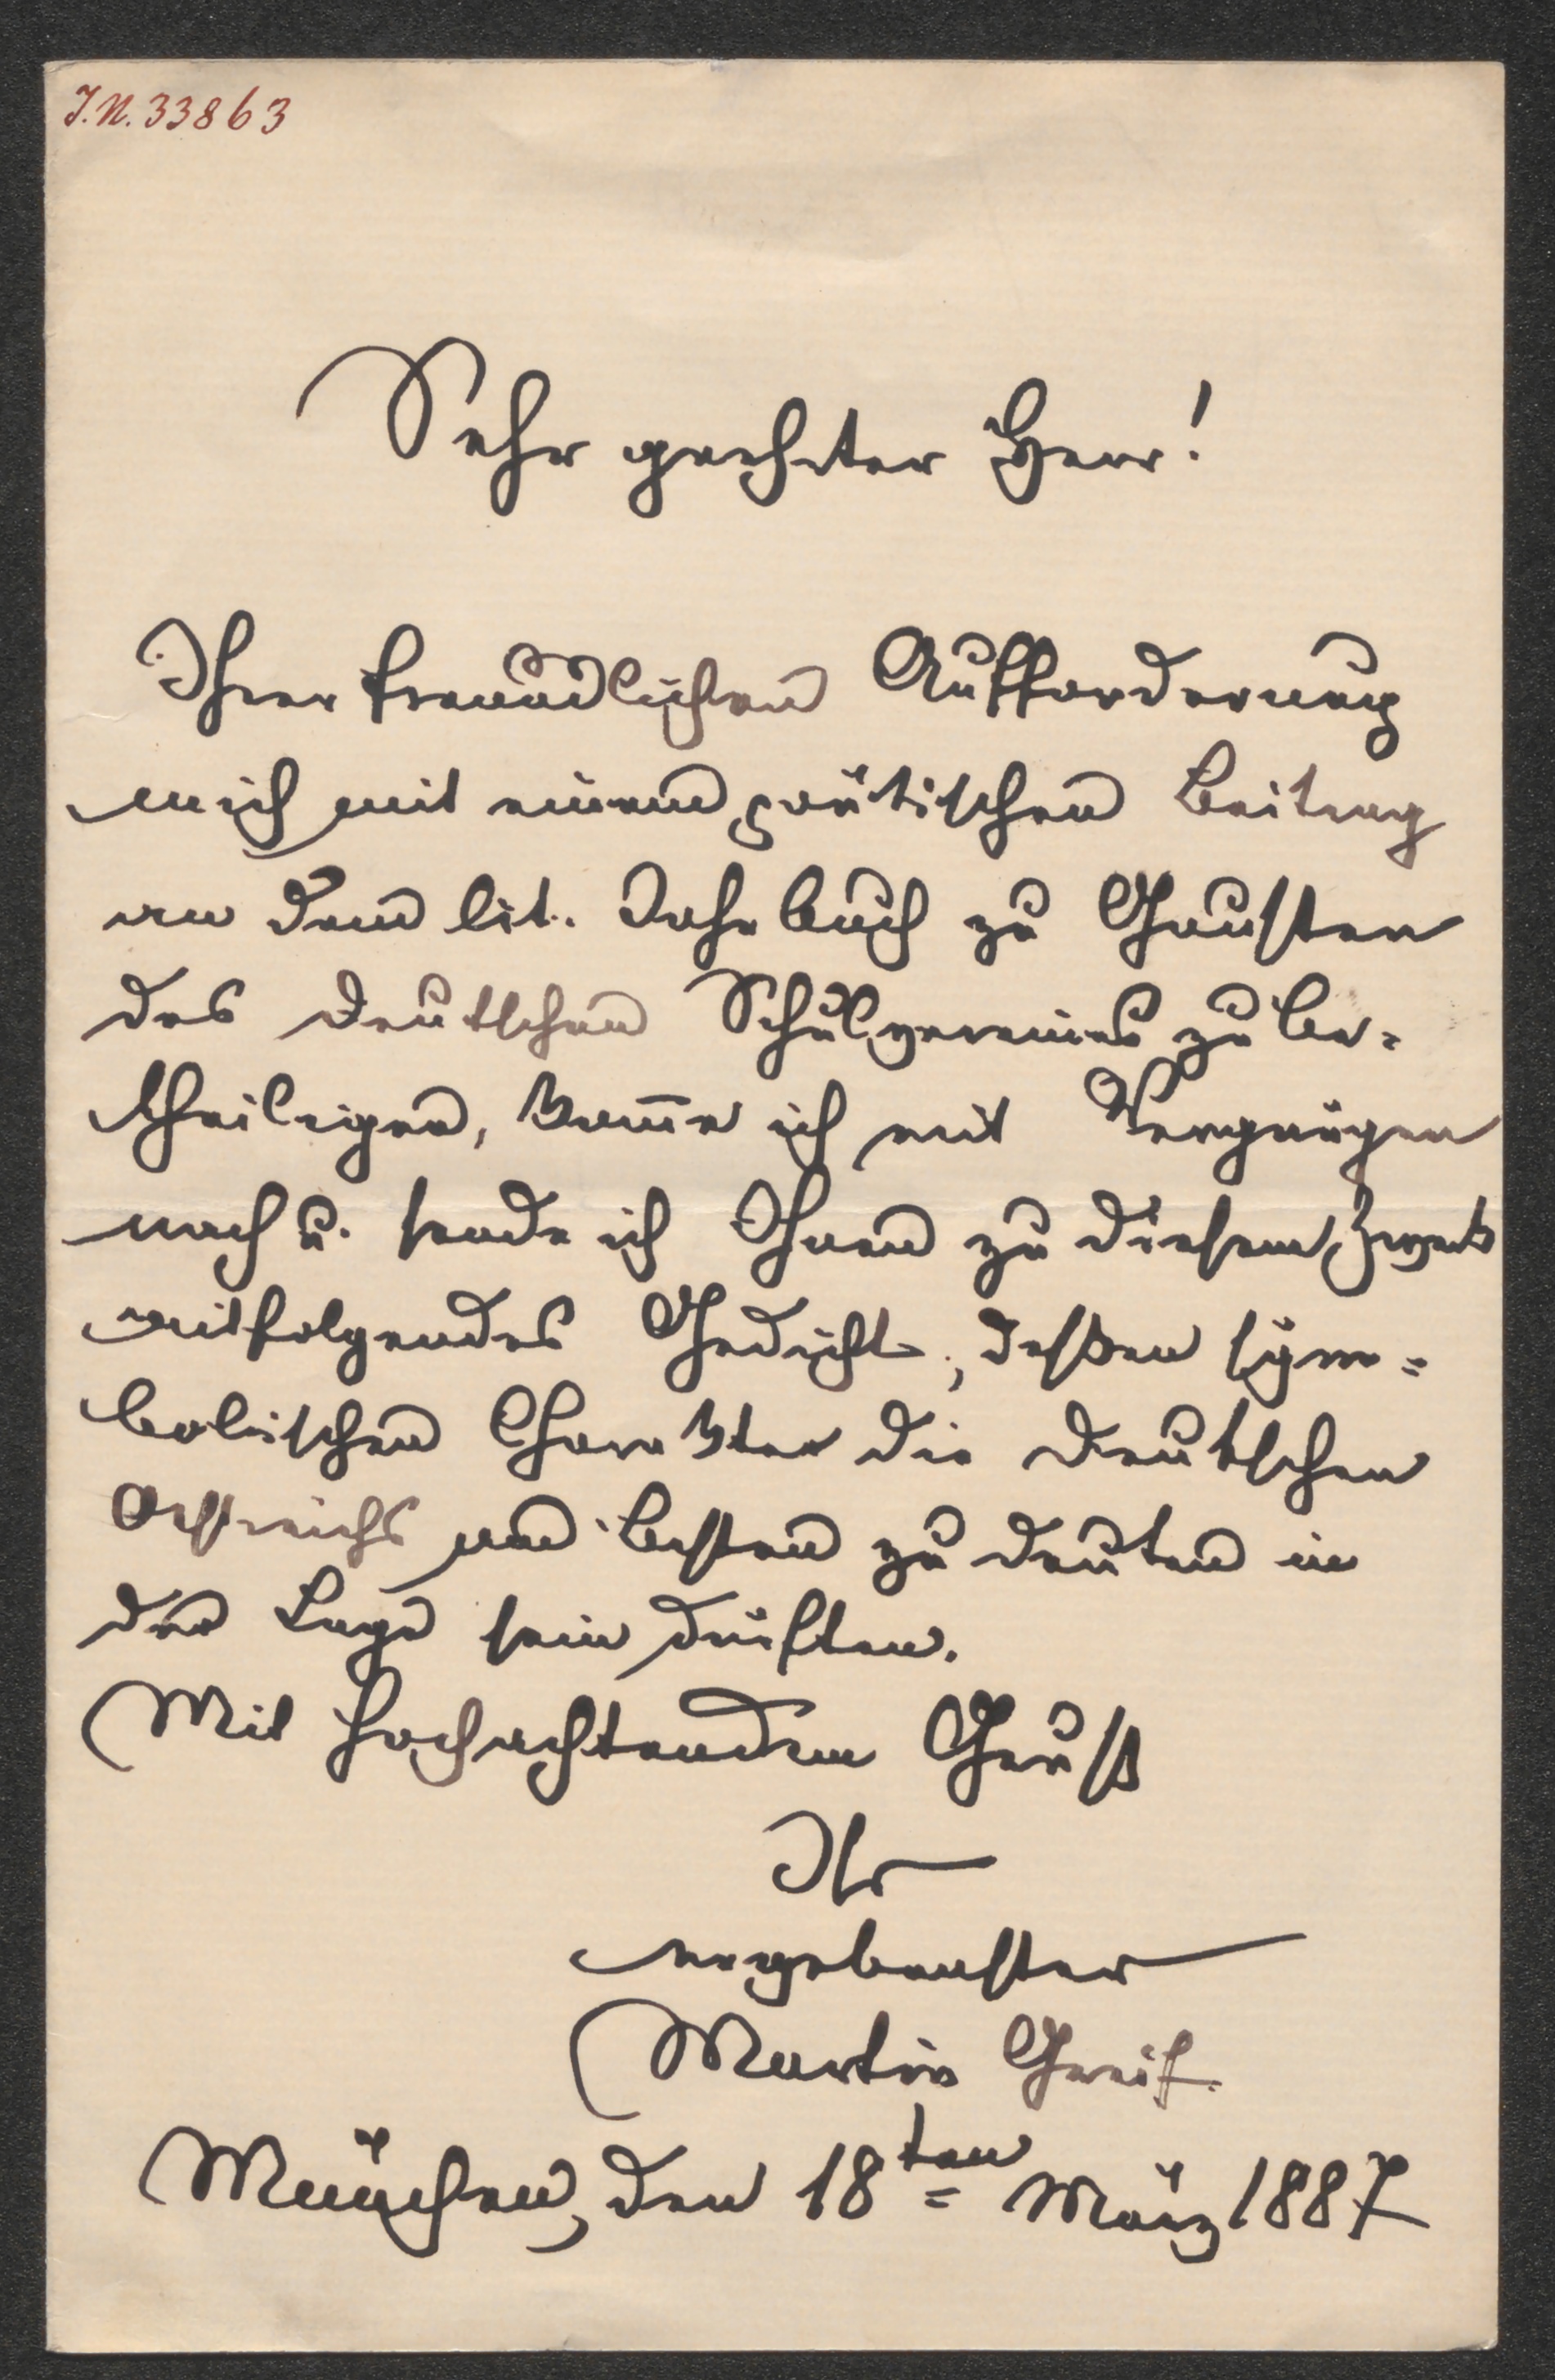 J.N. 33863
Sehr geehrter Herr!
Ihrer freundlichen Aufforderung
mich mit einem poëtischen Beitrag
an dem lit. Jahrbuch zu Gunsten
des deutschen Schulvereines zu be-
theiligen, kom̅e ich mit Vergnügen
nach u. sende ich Ihnen zu diesem Zweck
mitfolgendes Gedicht, deßen sym-
bolischen Charakter die Deutschen
Oestreichs am besten zu deuten in
der Lage sein dürften.
Mit hochachtendem Gruß
Ihr
ergebenster
Martin Greif.
München, den 18ten März 1887